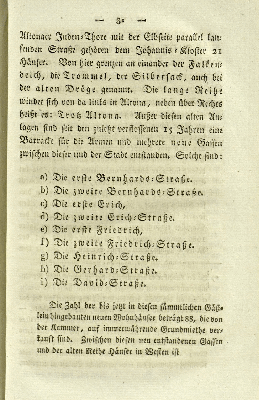 — 32 —
Altonaer Juden-Thore mit der Elbseite parallel lau-
fenden Straße gehören dem Johannis-Kloster 21
Häuser. Von hier grenzen an einander der Falken-
deich, die Trommel, der Silbersack, auch bei
der alten Dröge genannt. Die lange Reihe
windet sich von da links in Altona, neben über Rechts
heißt es: Trotz Altona. Außer diesen alten An-
lagen sind seit den zuletzt verflossenen 15 Jahren eine
Baracke für die Armen und mehrere neue Gassen
zwischen dieser und der Stadt entstanden. Solche sind:
a) Die erste Bernhards-Straße.
b) Die zweite Bernhards-Straße.
c) Die erste Erich,
d) Die zweite Erich-Straße.
e) Die erste Friedrich,
f) Die zweite Friedrich-Straße.
g) Die Heinrich-Straße.
h) Die Gerhard-Straße.
i) Die David-Straße.
Die Zahl der bis jetzt in diesen sämmtlichen Gäß-
lein hingebauten neuen Wohnhäuser beträgt 88, die von
der Kammer, auf immerwährende Grundmiethe ver-
kauft sind. Zwischen diesen neu entstandenen Gassen
und der alten Reihe Häuser in Westen ist